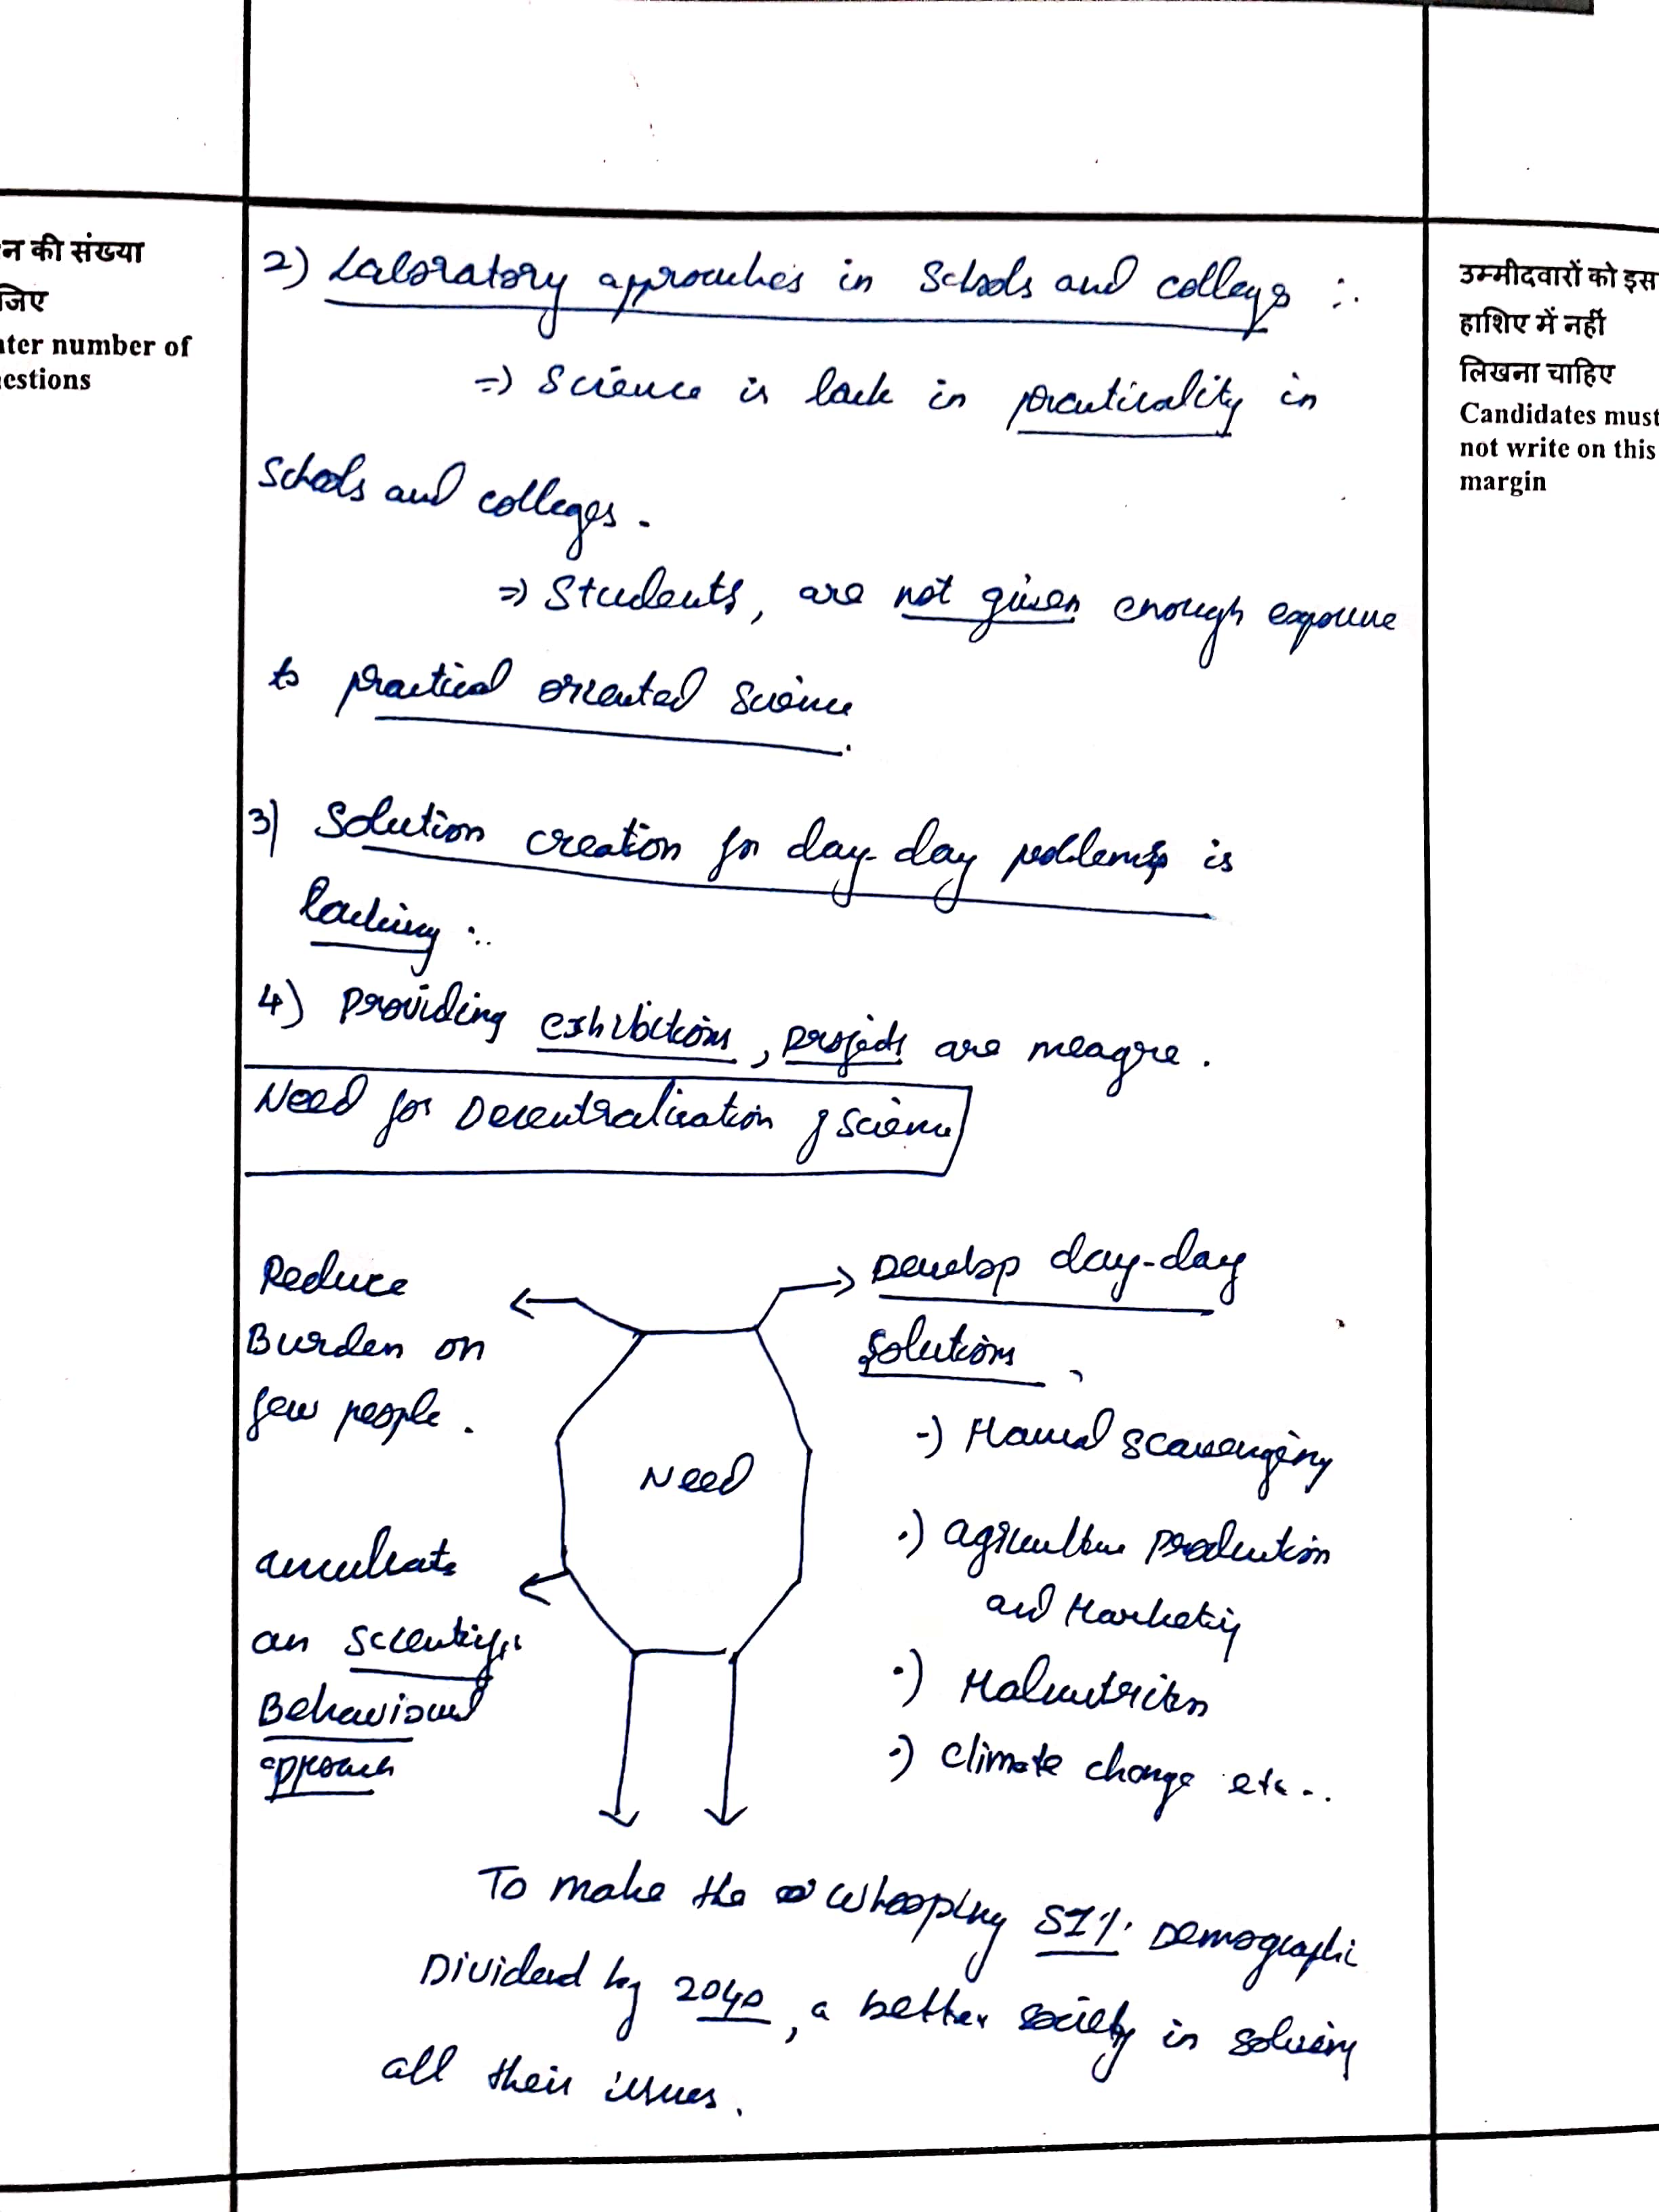 न की संख्या
जिए
nter number of
estions
उम्मीदवारों को इस
हाशिए में नहीं
लिखना चाहिए
Candidates must
not write on this
margin
2) Laboratory approaches in Schools and colleges :.
=) Science is lack in practicality in
Schools and colleges.
=) Students, are not given enough exposure
to practical oriented science.
3) Solution creation for day-day problems is
lacking :.
4) Providing exhibitions, projects are meagre.
Need for Decentralisation of Science
Reduce
Burden on
few people.
Develop day-day
solutions,
-) Manual scavenging
Need
.) agriculture production
and Marketing
.) Malnutrition
.) climate change etc..
an scientific
Behavioural
approach
To make the whooping 51% Demographic
Dividend by 2040, a better society in solving
all their issues.